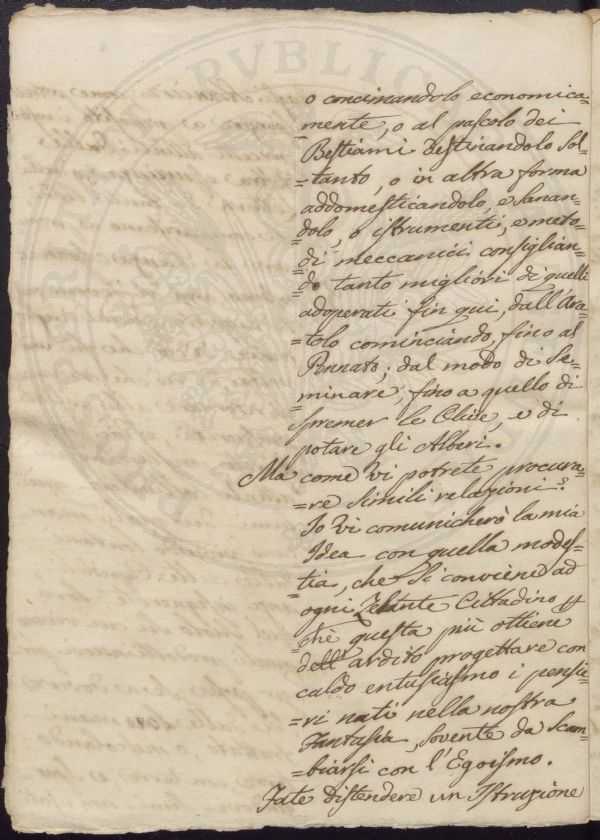 o concimandolo economica=
mente, o al pascolo dei
Bestiami destinandolo sol=
=tanto, o in altra forma
addomesticandolo, e sanan=
=dolo, o istrumenti, e meto=
=di meccanici consiglian=
=do tanto migliori di quelli
adoperati fin qui, dall'Ara=
=tolo cominciando, fino al
Pennato; dal modo di Se=
=minare, fino a quello di
spremer le Olive, e di
potare gli Alberi.
Ma come vi potrete procura=
=re simili relazioni?
Io vi comunicherò la mia
Idea con quella modes=
=tia, che si conviene ad
ogni Zelante Cittadino
chè questa più ottiene
dell'ardito progettare con
caldo entusiasmo i pensie=
=ri nati nella nostra
Fantasia, sovente da Scam=
=biarsi con l'Egoismo.
Fate distendere un Istruzione